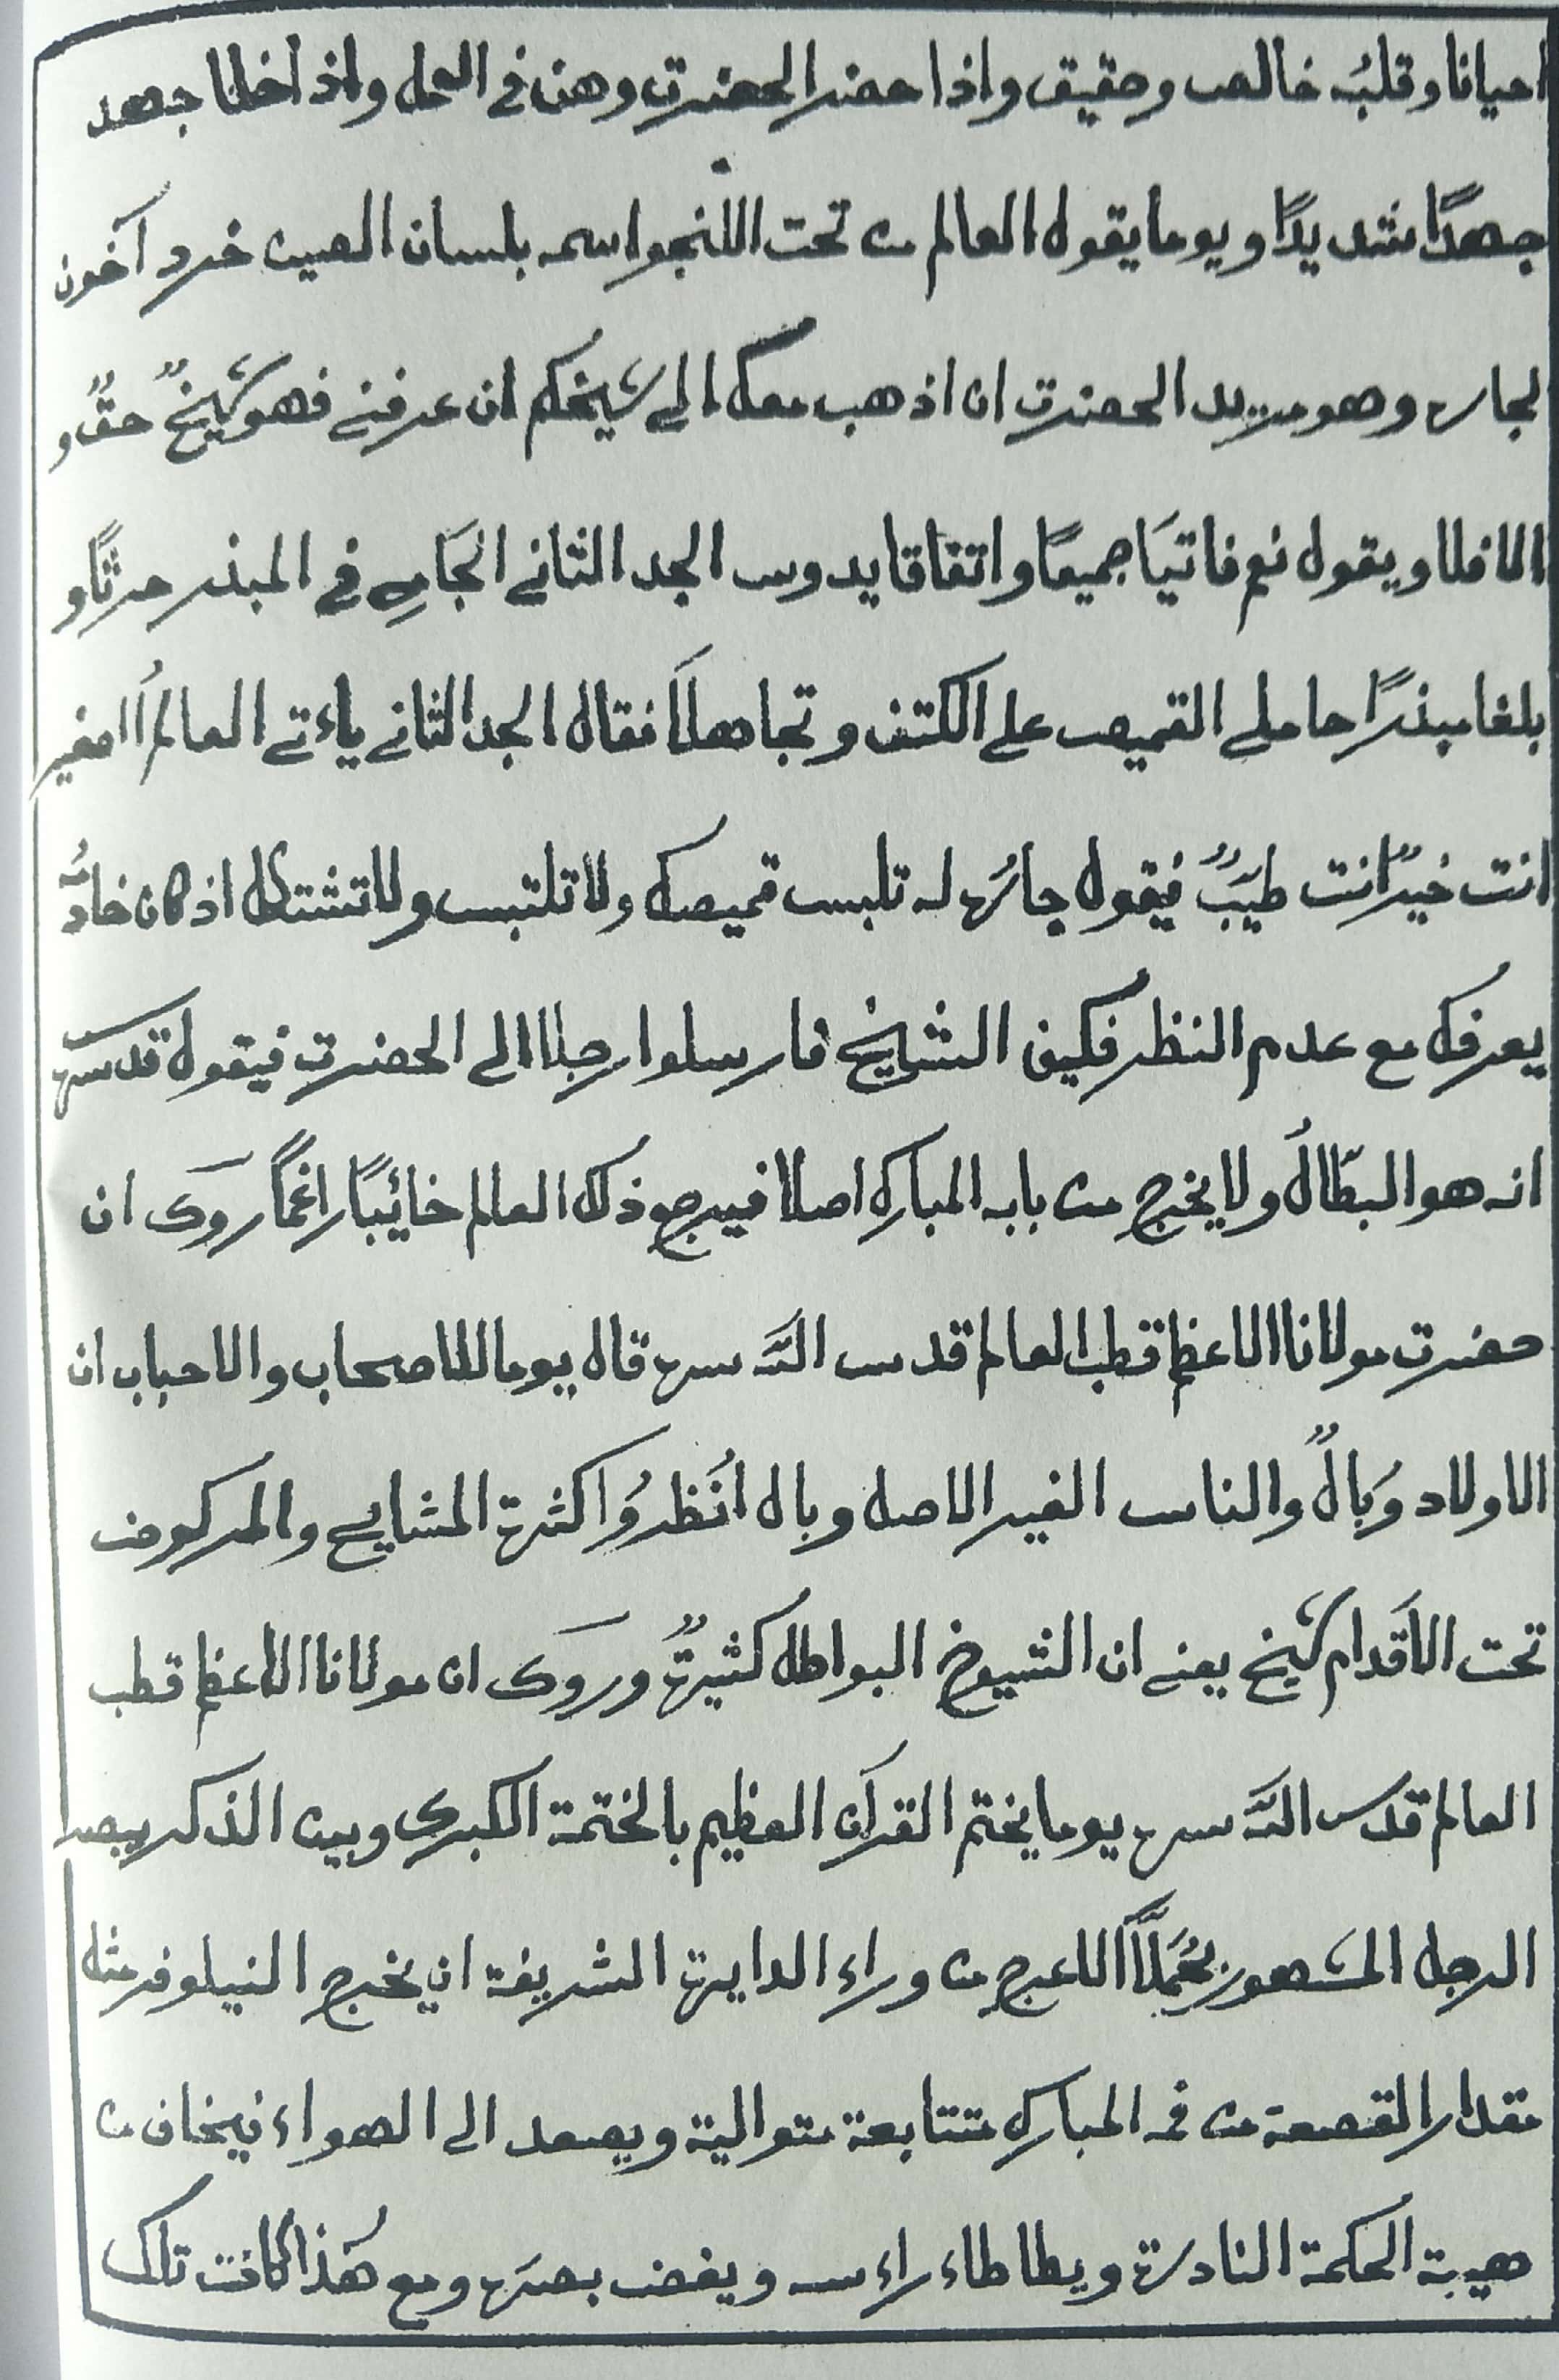 احيانا وقلبُه خالص وحقيق واذا حضر الحضرت وهن في العمل واذ اخلا جهد
جهدًا شديدًا ويوما يقول العالم من تحت اللنجو اسمه بلسان الصين خرد آخون
لجاره وهو مريد الحضرت ان اذهب معك الى شيخكم ان عرفني فهو شيخٌ حقٌ و
الا فلا ويقول نعم فاتيَا جميعًا واتفاقا يدوس الجد الثاني الجَامِ في المبذر حرثًا و
بلغا مبذرًا حاملي القميص على الكتف وتجاهلاَ فقال الجد الثاني ياءتي العالمُ اامغير
انت خيرٌ انت طيّبٌ فيقول جارُه له تلبس قميصك ولا تلتبس ولا تشتكل اذ كان خادُمه
يعرفك مع عدم النظر فكيف الشيخ فارسلوا رجلا الى الحضرت فيقول قدس سره
انه هو البطّالُ ولا يخرج من بابه المبارك اصلا فيرجع ذلك العالم خائيبًا راغمًا روى ان
حضرت مولانا الاعظم قطب العالم قدس الله سره قال يوما للاصحاب والاحباب ان
الاولاد وَبالٌ والناس الغير الاصل وبال انُظروُا كثرة المشايخ والمركوض
تحت الاَقدام شيخ يعني ان الشيوخ البواطل كثيرةٌ وروى ان مولانا الاعظم قطب
العالم قدس الله سره يوما يختم القرآن العظيم بالختمة الكبرى وبين الذكر يبصر
الرجل المشهور بمُحَمَّلاً الاعرج من وراء الدايرة الشريفة ان يخرج النيلوفر مثله
مقدار القصعة من فمه المبارك متتابعة متوالية ويصعد الى الهواء فيخاف من
هيبة الحكمة النادرة ويطاطاء راءسه ويغض بصرَه ومع هٰذا كانت تلك